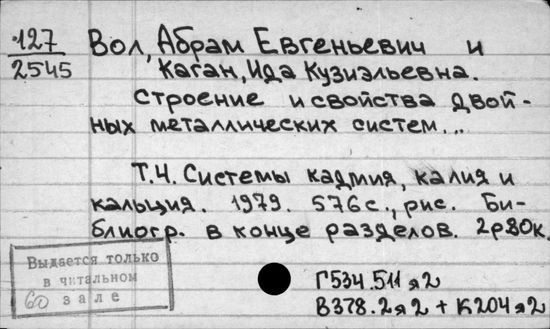 127
2545
Вол, Абрам Евгеньевич и
Каган, Ида Кузиэльевна.
Строение и свойства двой-
ных металлических систем...
Т.4. Системы кадмия, калия и
кальция. 1979. 576 с., рис. Би-
блиогр. в конце разделов. 2р80к.
Выдается только
в читальном
зале
60
Г534.511 я2
В378.2я2 + К204 я2